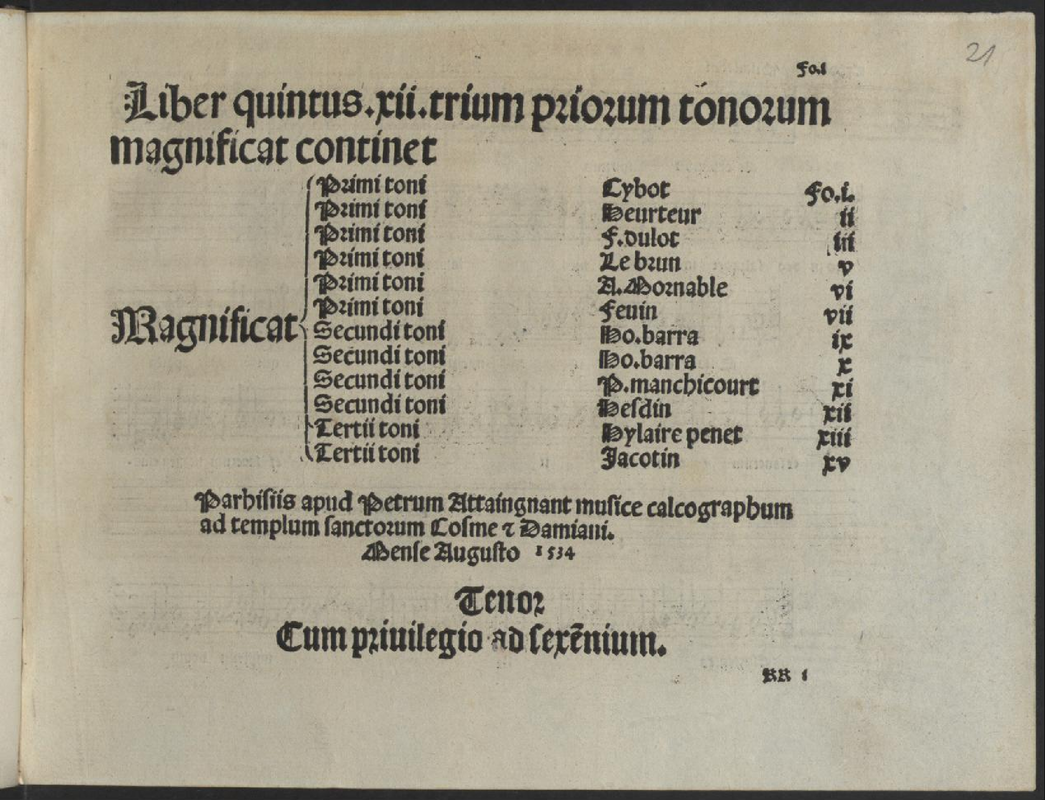 21
Fo.i
Liber quintus.xii.trium priorum tonorum
magnificat continet
Magnificat
Primi toni Cybot Fo.i.
Primi toni Heurteur ii
Primi toni F.dulot iii
Primi toni Le brun v
Primi toni A.Mornable vi
Primi toni Feuin vii
Secundi toni Ho.barra ix
Secundi toni Ho.barra x
Secundi toni P.manchicourt xi
Secundi toni Heſdin xii
Tertii toni Hylaire penet xiii
Tertii toni Jacotin xv
Parhiſiis apud Petrum Attaingnant muſice calcographum
ad templum ſanctorum Coſme ⁊ Damiani.
Menſe Auguſto 1534
Tenor
Cum priuilegio ad ſexẽnium.
RR i